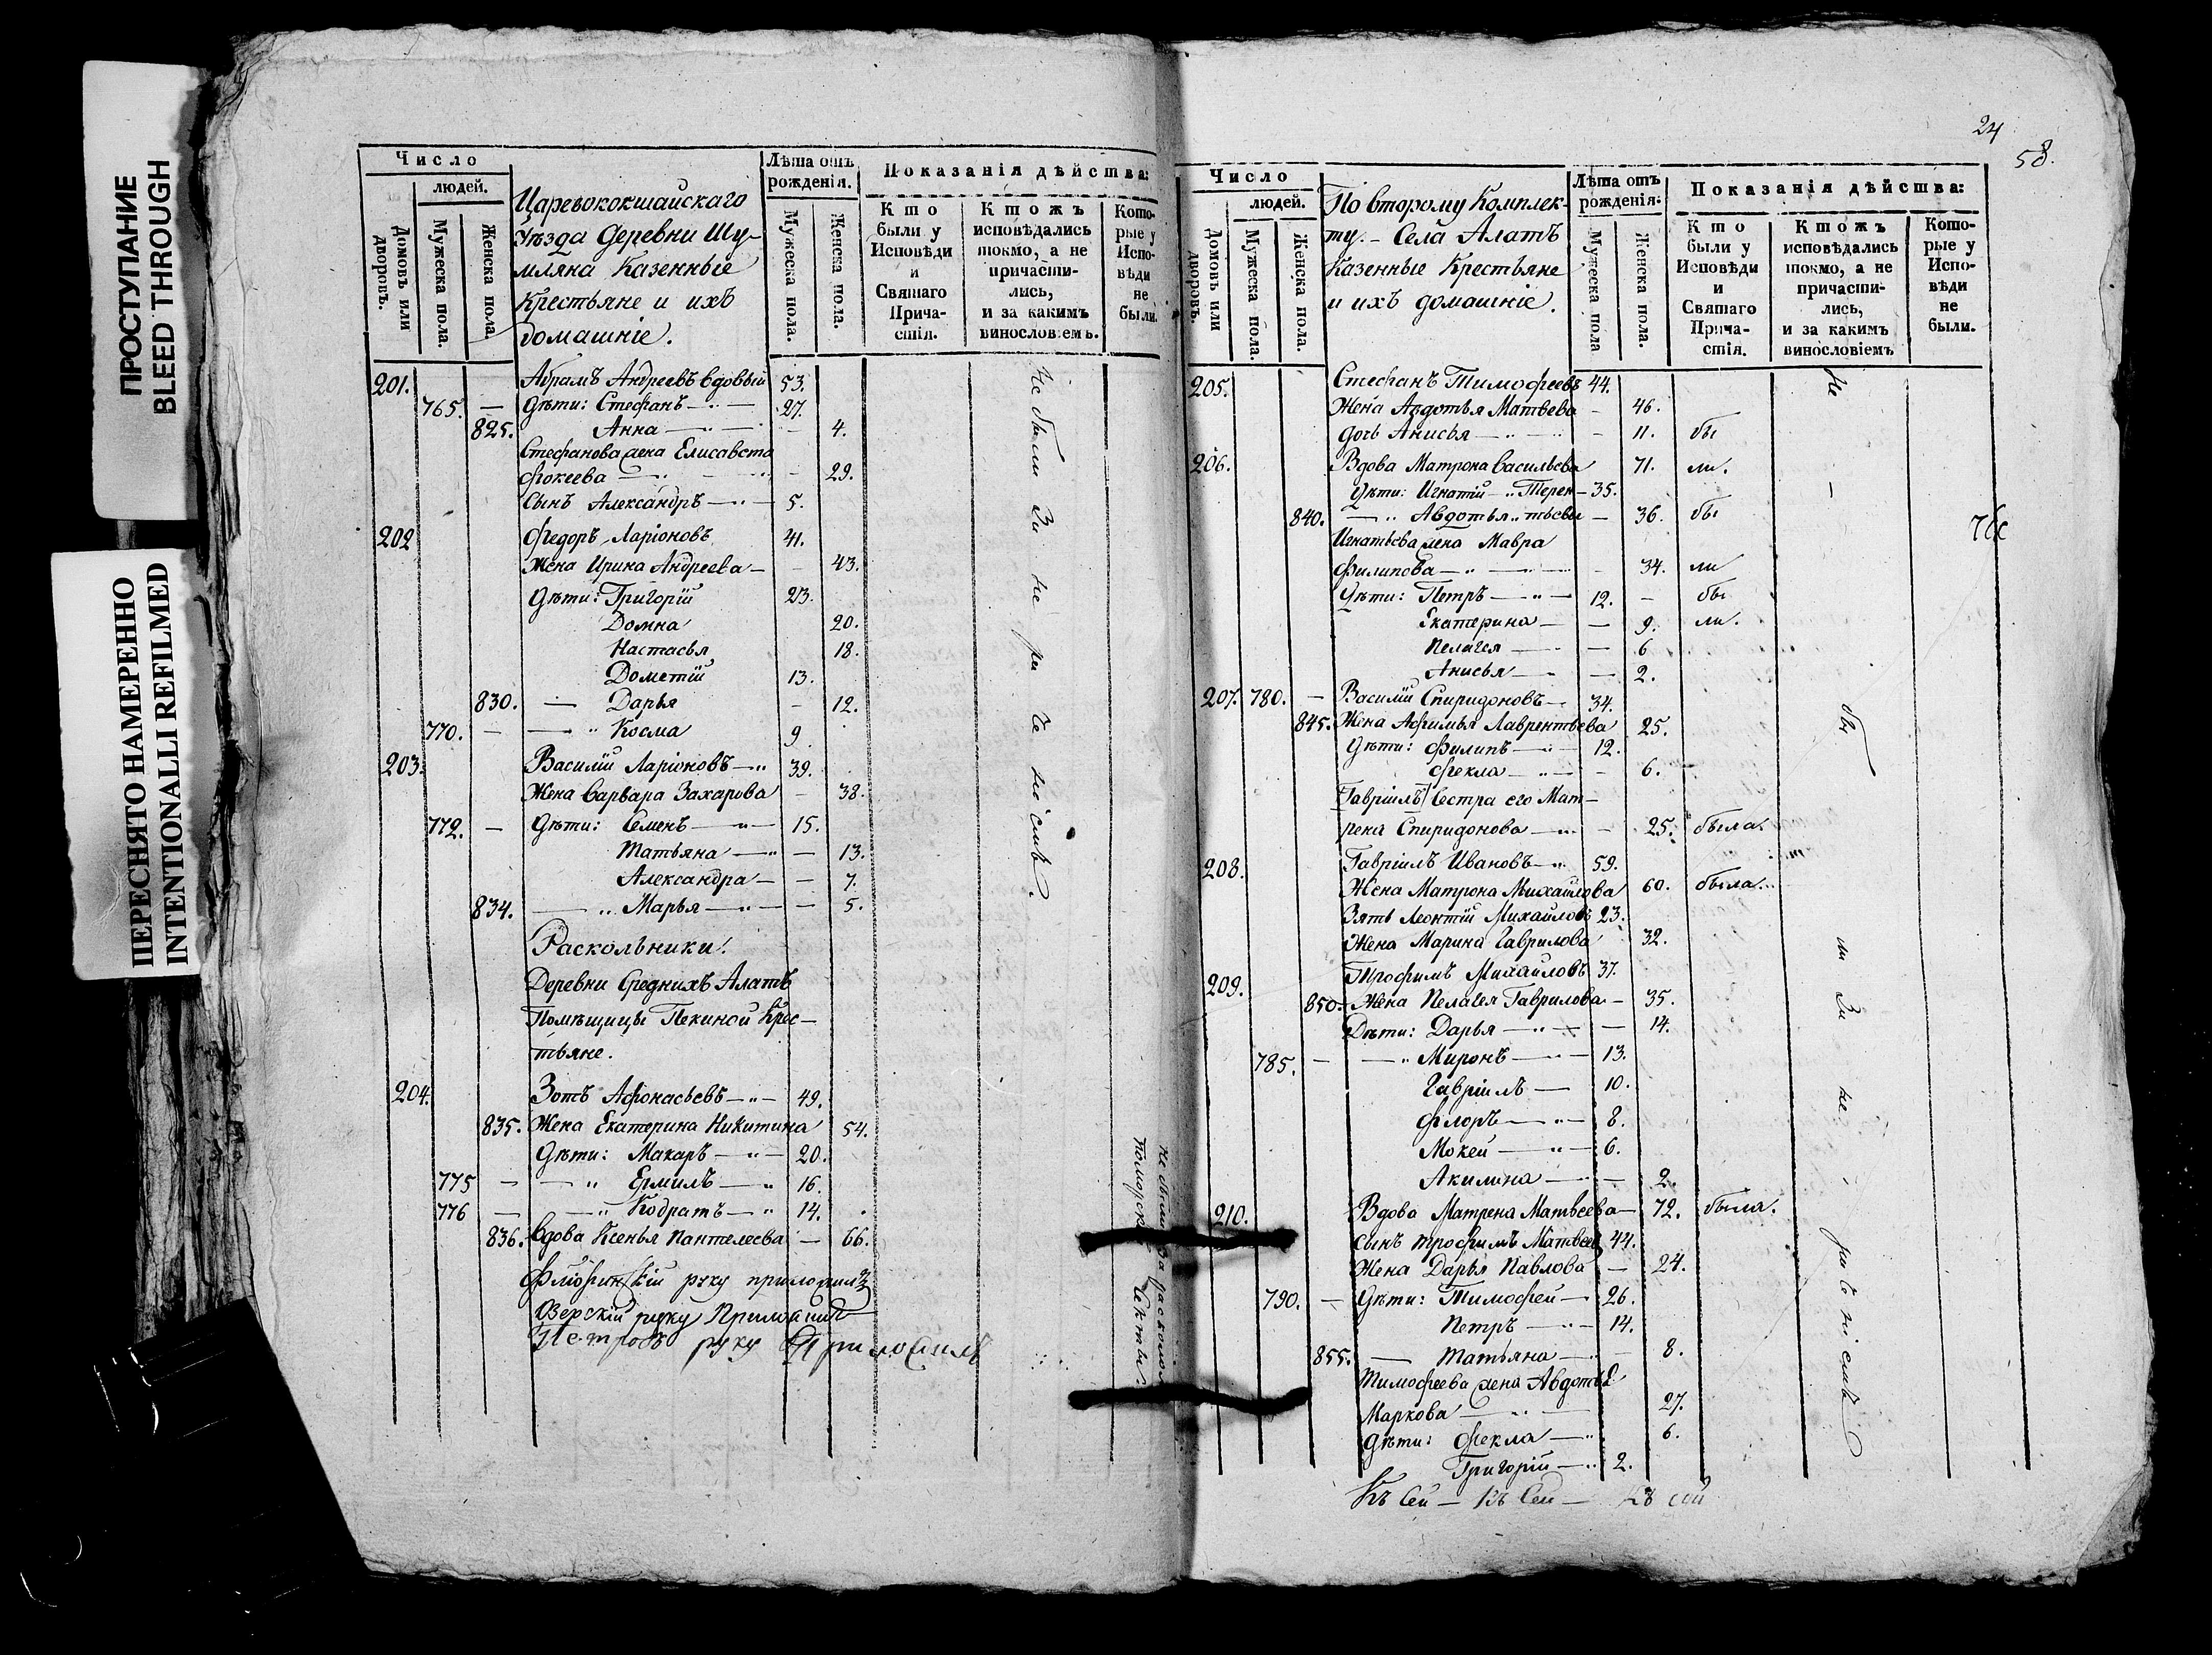 ПРОСТУПАНИЕ
BLEED THROUGH
ПЕРЕСНЯТО НАМЕРЕННО
INTENTIONALLI REFILMED
Число
людей.
Домовъ или дворовъ.
Мужеска пола.
Женска пола.
Царевококшайскаго
Уѣзда деревни Шу-
мляна Казенные
Крестьяне и ихъ
домашніе.
Лѣта отъ рожденія.
Мужеска пола.
Женска пола.
Показанія дѣйства:
Кто были у Исповѣди и Святаго Причастія.
Ктожъ исповѣдались токмо, а не причасти-лись, и за какимъ винословіемъ.
Кото-рые у Испо-вѣди не были.
201. Абрамъ Андреевъ вдовый 53.
765. — Дѣти: Стефанъ — 27.
825. Анна — 4.
Стефанова жена Елисавета
Фокеева — 29.
Сынъ Александръ — 5.
202 Федоръ Ларіоновъ 41.
Жена Ирина Андреева — 43.
Дѣти: Григорій 23.
Домна 20.
Настасья 18.
Дометій 13.
830. — Дарья — 12.
770. — Косма 9
203. Василій Ларіоновъ — 39.
Жена Варвара Захарова — 38.
772. — Дѣти: Семенъ — 15.
Татьяна — 13.
Александра — 7.
834. — Марья — 5.
Раскольники:
Деревни Среднихъ Алатъ
Помѣщицы Пекиной Крес-
тьяне.
204. Зотъ Афонасьевъ — 49.
835. Жена Екатерина Никитина 54.
Дѣти: Макаръ — 20.
775 — Ермилъ — 16.
776 — Кодратъ — 14.
836. Вдова Ксенья Пантелеева — 66.
руку приложилъ
Озерскій руку Приложилъ
Петровъ руку Приложилъ
Не были За не ра че ніемъ.
24
58.
Число
людей.
Домовъ или дворовъ.
Мужеска пола.
Женска пола.
По второму Комплек-
ту. - Села Алатъ
Казенные Крестьяне
и ихъ домашніе.
Лѣта отъ рожденія:
Мужеска пола
Женска пола.
Показанія дѣйства:
Кто были у Исповѣди и Святаго Причастія.
Ктожъ исповѣдались токмо, а не причасти-лись, и за какимъ винословіемъ
Кото-рые у Испо-вѣди не были.
205. Стефанъ Тимофеевъ 44.
Жена Авдотья Матвева — 46.
дочь Анисья — 11. бы
206. Вдова Матрона Васильева 71. ли.
Дѣти: Игнатій — Терен — 35.
840. — Авдотья тьевы — 36. бы
Игнатьева жена Мавра
Филипова — 34. ли
Дѣти: Петръ — 12. — бы
Екатерина — 9. ли.
Пелагея — 6
Анисья — 2.
207. 780. — Василій Спиридоновъ — 34.
845. Жена Афимья Лаврентьева 25.
Дѣти: Филипъ — 12.
Фекла — 6.
Гавріилъ Сестра его Мат-
рена Спиридонова — 25. была.
208. Гавріилъ Ивановъ — 59.
Жена Матрона Михайлова 60. была.
Зять Леонтій Михайловъ 23.
Жена Марина Гаврилова 32.
209. Трофимъ Михайловъ 37.
850. Жена Пелагея Гаврилова — 35.
Дѣти: Дарья — 14.
785. — Миронъ — 13.
Гавріилъ — 10.
Флоръ — 8.
Мокей — 6.
Акилина — 2.
210. Вдова Матрена Матвеева — 72. была.
Сынъ Трофимъ Матвеев 44.
Жена Дарья Павлова — 24.
790. — Дѣти: Тимофей — 26.
Петръ — 14.
855. — Татьяна — 8.
Тимофеева жена Авдотья
Маркова — 27.
Дѣти: Фекла — 6.
Григорій — 2.
Къ Сей — Къ Сей — Къ сей
Не — бы ли За не ра че ніемъ